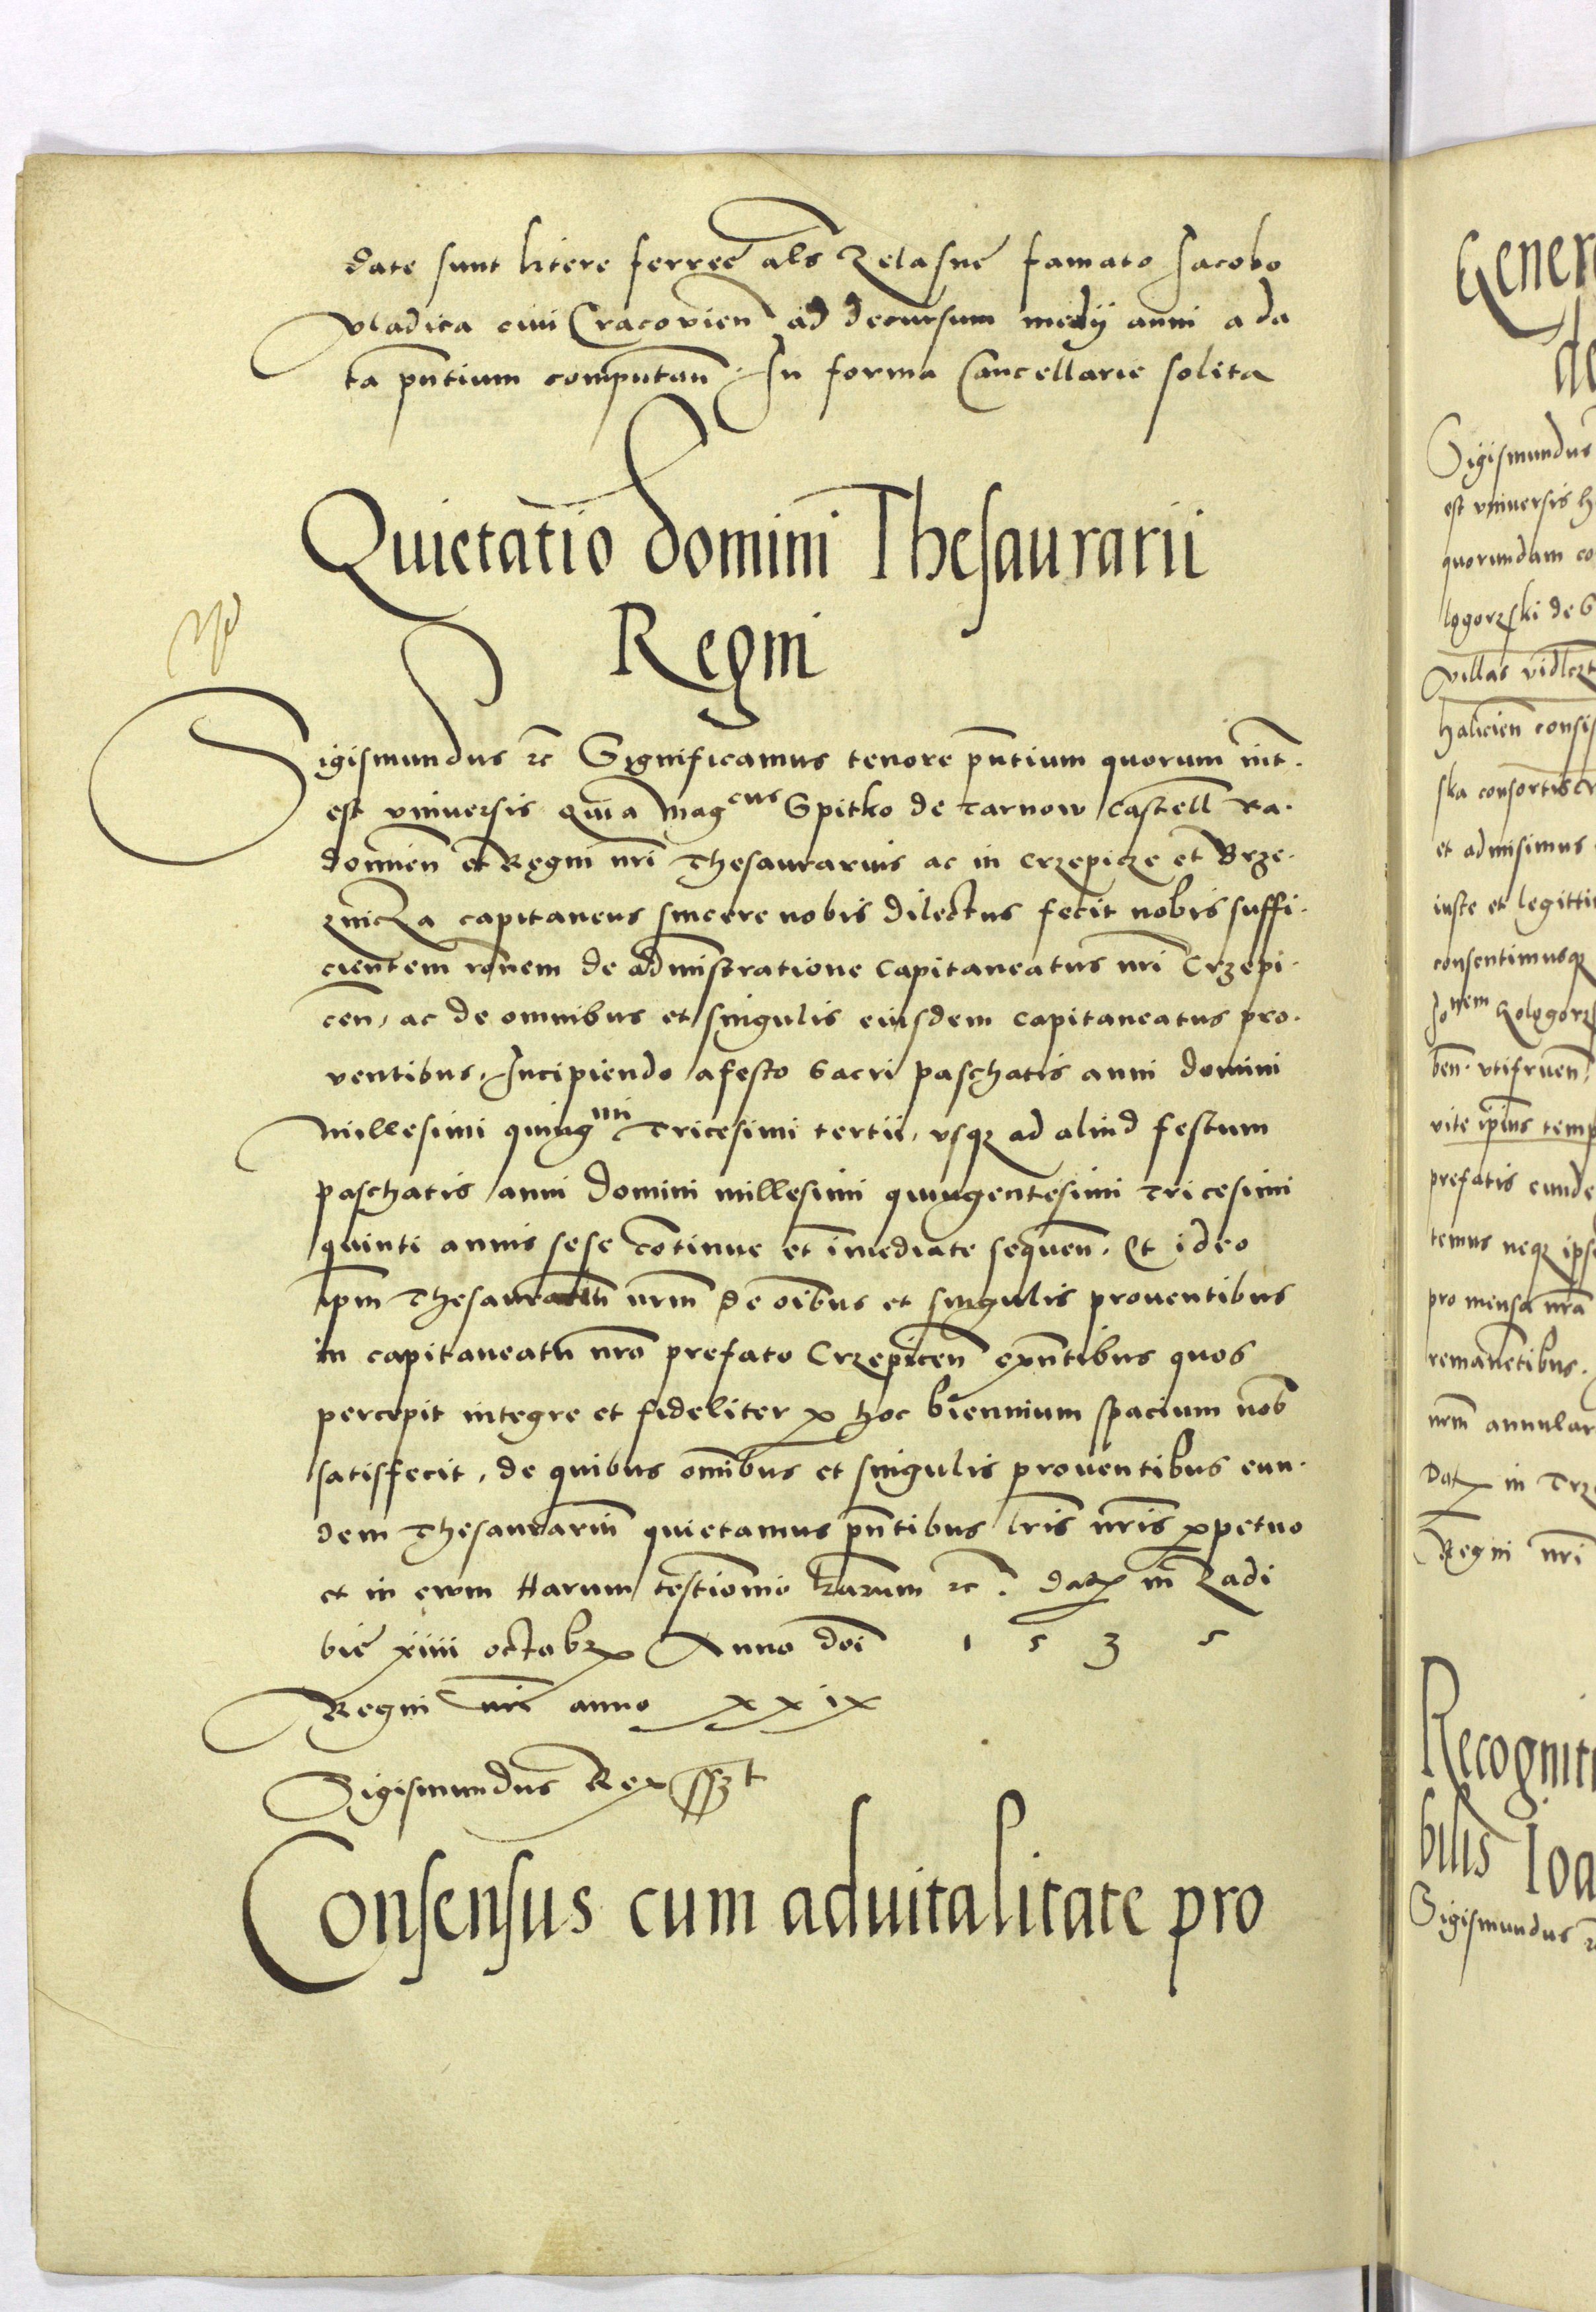 date sunt litere ferree als Zelasne famato Jacobo
vladica ciui Cracovien ad decursum medij anni a da
ta pntium computan. In forma Cancellarie solita
Quietatio domini Thesaurarii
Regni
Sigismundus rc Significamus tenore pntium quorum int.
est vniuersis quia Magcus Spitko de Tarnow Castell Ra.
domien et Regni nri Thesaurarius ac in Crzepicze et Brze.
znicza capitaneus sincere nobis dilectus fecit nobis suffi.
cientem ronem de administratione Capitaneatus nri Crzepi.
cen, ac de omnibus et singulis eiusdem capitaneatus pro.
ventibus. Incipiendo a festo Sacri paschatis anni domini
Millesimi quingmi Tricesimi tertii, vsqz ad aliud festum
paschatis anni domini millesimi quingentesimi Tricesimi
quinti annis sese continue et imediate sequen. Et ideo
ipm Thesaurariu nrm de oibus et singulis prouentibus
in capitaneatu nro prefato Crzepicen exntibus quos
percepit integre et fideliter p hoc biennium spacium nob
satisfecit, de quibus omibus et singulis prouentibus eun.
dem Thesaurariu quietamus pntibus lris nris ppetuo
et in ewm Harum testimonio lrarum rc. Datz in Zadi
bie xiiii octobrz Anno doi 1 5 3 5
Regni nri anno xxix
Sigismundus Rex sszt
Consensus cum aduitalitate pro
Gener
de
Sigismundus
est vniuersis h
quorundam co
de G
villas
halicien consis
ska consortis
et admisimus
iuste et legitti
consentimusqz
ben. vtifruen
vite ipius temp
prefatis eunde
temus neqz ips
pro mensa nra
remanetibus.
nrm annular
Datz in
Regni nri
Recogniti
bilis Ioa
Sigismundus